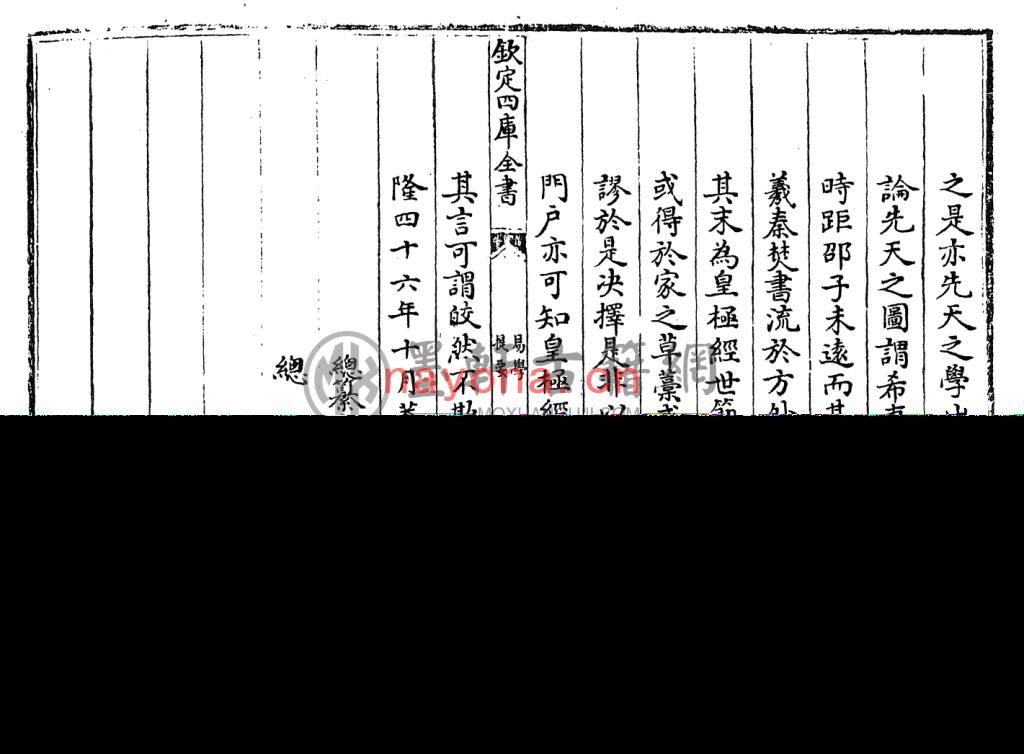 之是亦先天之學
論先天之圖謂希
時距邵子未遠而其
羲秦焚書流於方外
其末為皇極經世
或得於家之草藁
謬於是决擇是非
門戶亦可知皇極經
欽定四庫全書
易學
提要
其言可謂皎然不欺
隆四十六年十月
總纂
總
墨軒古籍網
nayona.cn